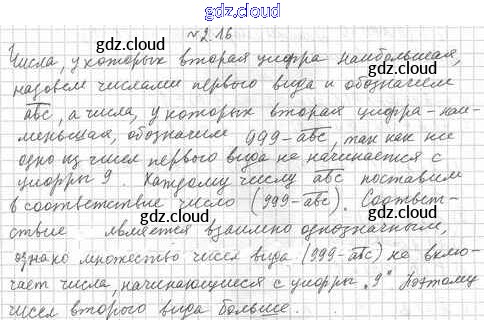 gdz.cloud
№2.16
gdz.cloud gdz.cloud
Числа, у которых вторая цифра наибольшая,
назовем числами первого вида и обозначем
abc, а числа, у которых вторая цифра - наи-
меньшая, обозначим 999-abc, так как не
одно из чисел первого вида не начинается с
цифры 9. Каждому числу abc поставим
в соответствие число (999-abc). Соответ-
gdz.cloud gdz.cloud
ствие является взаимно однозначным,
однако множество чисел вида (999-abc) не вклю-
чает числа, начинающиеся с цифры „9" Поэтому
чисел второго вида больше.
gdz.cloud